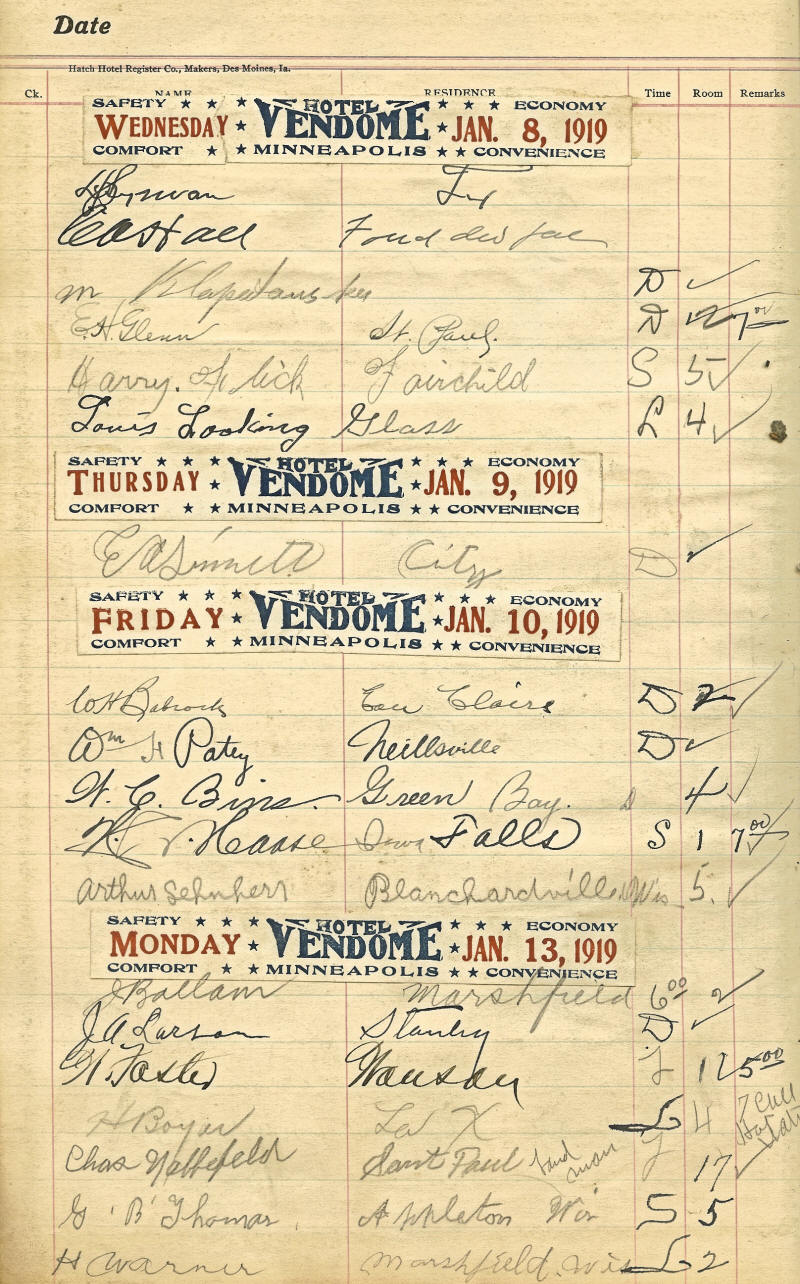 Date
Hatch Hotel Register Co., Makers, Des Moines, Ia.
Ck. NAME RESIDENCE Time Room Remarks
SAFETY ★ ★ ★ HOTEL ★ ★ ★ ECONOMY
WEDNESDAY ★ VENDOME ★ JAN. 8, 1919
COMFORT ★ ★ MINNEAPOLIS ★ ★ CONVENIENCE
E A Hall Fond du Lac
M D ✓
E. H. Glenn St. Paul. D 12 7 00
Harry. Flick Fairchild S 5 ✓
Louis Looking Glass L 4 ✓
SAFETY ★ ★ ★ HOTEL ★ ★ ★ ECONOMY
THURSDAY ★ VENDOME ★ JAN. 9, 1919
COMFORT ★ ★ MINNEAPOLIS ★ ★ CONVENIENCE
E A Sinnett City D ✓
SAFETY ★ ★ ★ HOTEL ★ ★ ★ ECONOMY
FRIDAY ★ VENDOME ★ JAN. 10, 1919
COMFORT ★ ★ MINNEAPOLIS ★ ★ CONVENIENCE
W H Babcock Eau Claire D 2 ✓
Wm H Patey Neillsville D ✓
W. C. Bins. Green Bay. D 4 ✓
Haase Iowa Falls S 1 7 00 ✓
Arthur Blanchardville Wis 5. ✓
SAFETY ★ ★ ★ HOTEL ★ ★ ★ ECONOMY
MONDAY ★ VENDOME ★ JAN. 13, 1919
COMFORT ★ ★ MINNEAPOLIS ★ ★ CONVENIENCE
J Ballam Marshfield 6 00 2 ✓
J A Larson Stanley D ✓
W. Foster Wausau 12 5 00
H Boyer La X L 4 7 Call
Chas Saint Paul 17 ✓
G B Thomas Appleton Wis S 5
H Warner Marshfield. Wis L 2